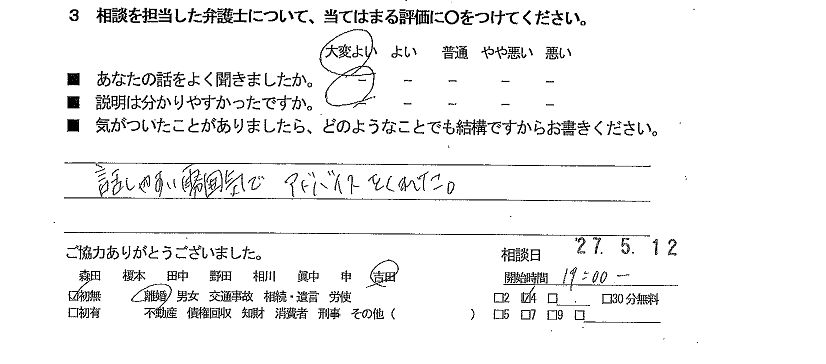 3 相談を担当した弁護士について、当てはまる評価に〇をつけてください。
大変よい よい 普通 やや悪い 悪い
■ あなたの話をよく聞きましたか。 － － － － －
■ 説明は分かりやすかったですか。 － － － － －
■ 気がついたことがありましたら、どのようなことでも結構ですからお書きください。
話しやすい雰囲気で アドバイスをくれた。
ご協力ありがとうございました。 相談日 '27. 5. 12
森田 榎本 田中 野田 相川 眞中 申 吉田 開始時間 19:00ー
☑初無 離婚 男女 交通事故 相続・遺言 労使 □2 ☑4 □ . □30分無料
□初有 不動産 債権回収 知財 消費者 刑事 その他 ( ) □5 □7 □9 □